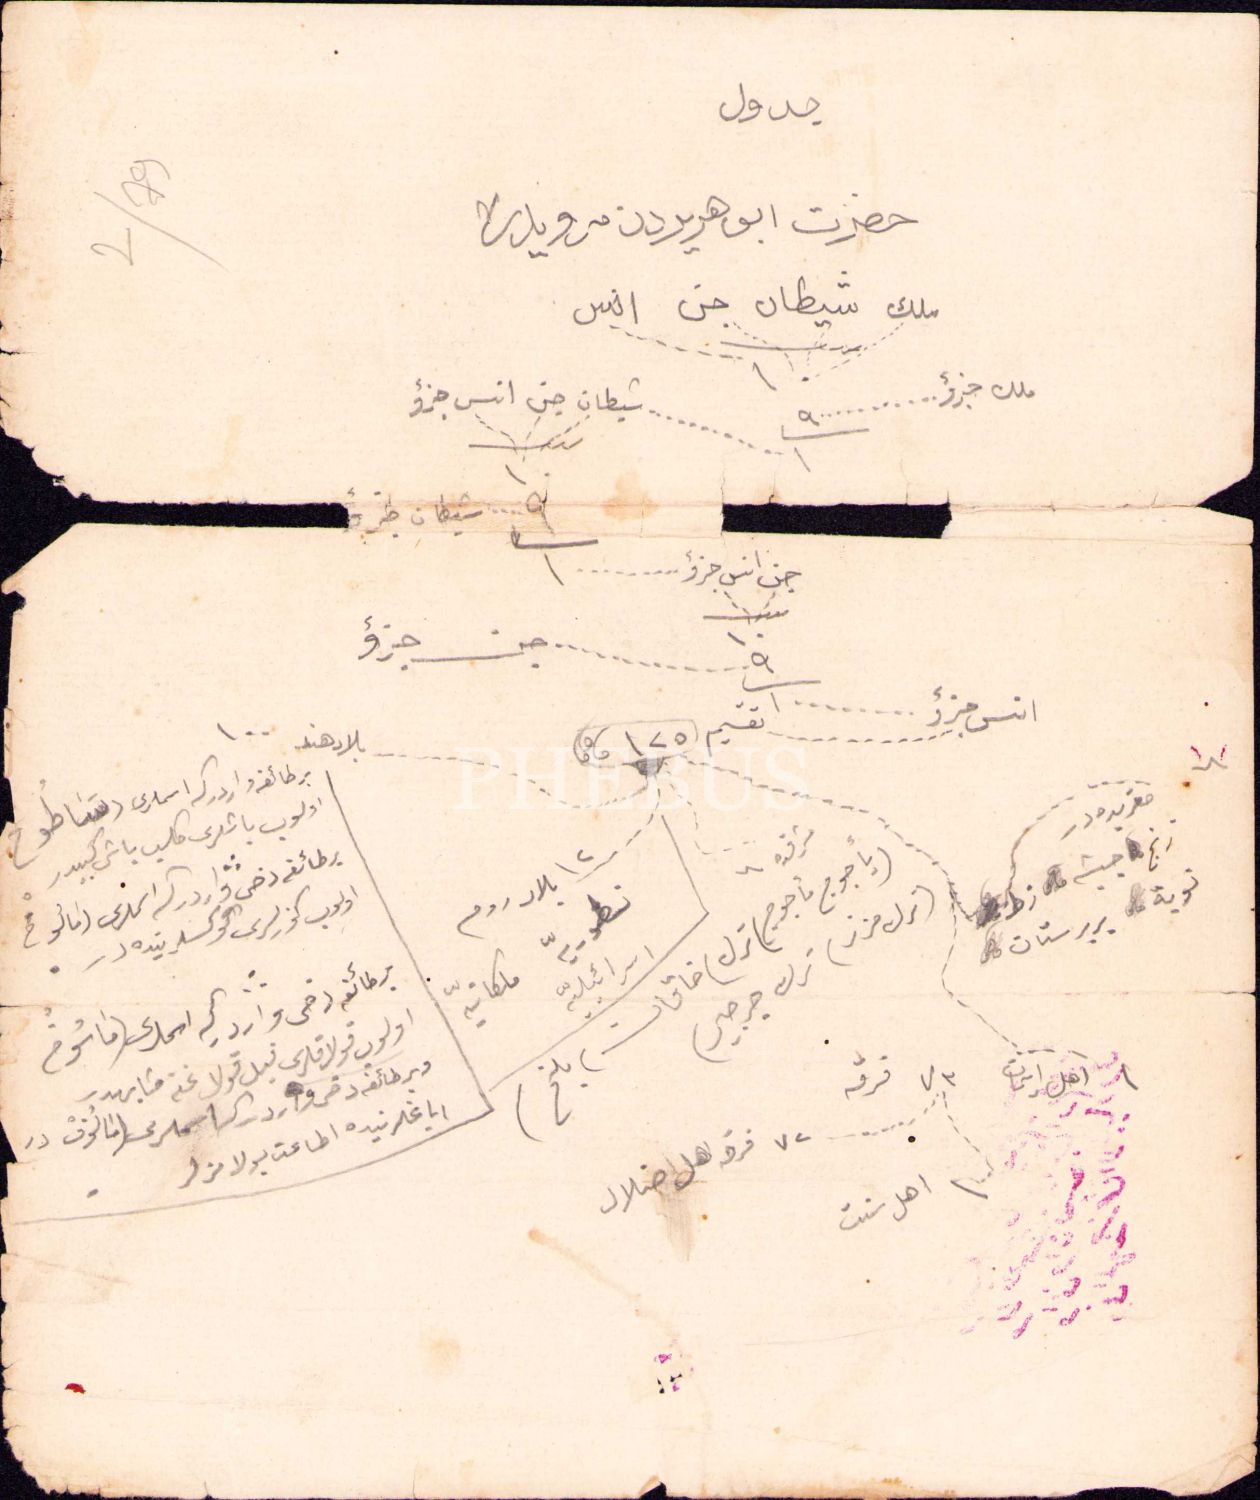 جدول
حضرت ابو هریره‌دن مرویدر
ملك شیطان جن انس
١٠
ملك جزؤ
٩
١
شیطان جن انس جزؤ
١٠
٩
شیطان جزؤ
١
جن انس جزؤ
١٠
٩
جن جزؤ
١
انس جزؤ
تقسیم
١٢٥
بلاد هند ١٠٠
بر طائفه واردر كه اسملری
اولوب باشلری كلب باشی كبیدر
بر طائفه دخی واردر كه اسملری
اولوب كوزلری كوكسلرینده در
بر طائفه دخی واردر كه اسملری
اولوب قولاقلری فیل قولاغنه مشابهدر
و بر طائفه دخی واردر كه اسملری در
ایاغلرینده اطاعت بولامزلر
١٢ بلاد روم
نسطوریه
ملكانیه
اسرائیلیه
مشرقده
(یأجوج مأجوج)
ترك خاقان
ترك خزر)
ترك جرجیر)
بلخ)
مغربده در
زنج حبشه زط
نوبة بربرستان
اهل ایمان ١
٧٣ فرقه
٧٢ فرقه اهل ضلال
١ اهل سنت
2/29
PHEBUS